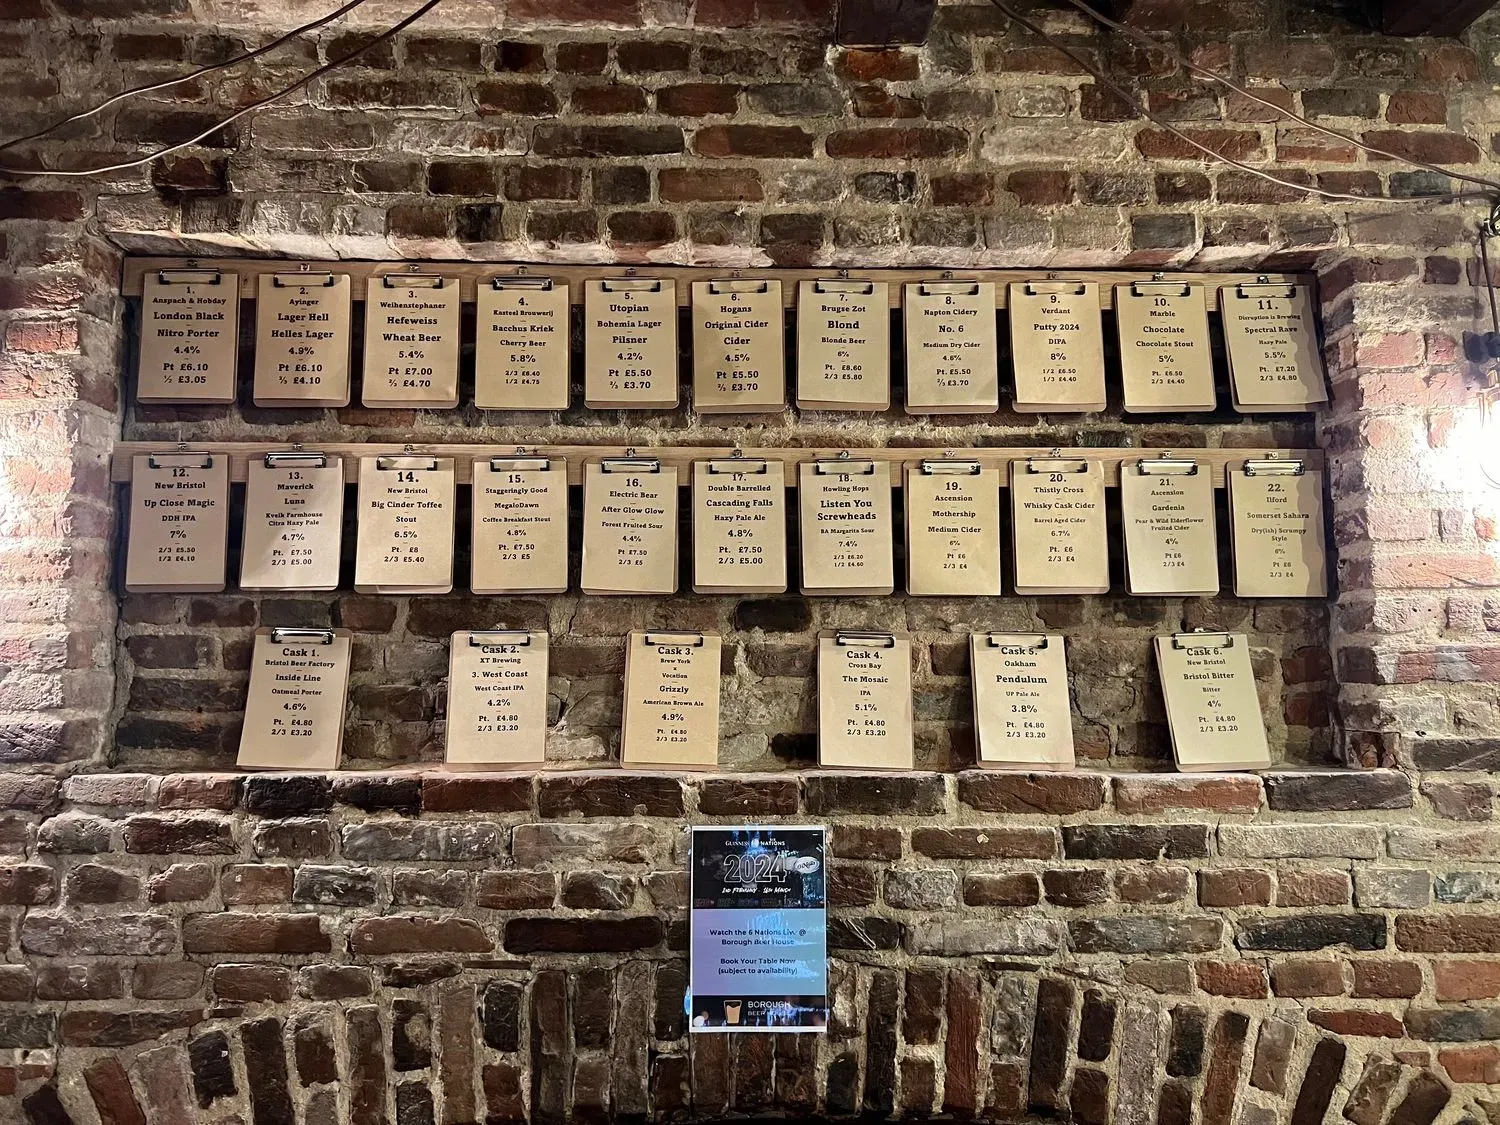 1.
Anspach & Hobday
London Black
Nitro Porter
4.4%
Pt £6.10
½ £3.05
2.
Ayinger
Lager Hell
Helles Lager
4.9%
Pt £6.10
⅔ £4.10
3.
Weihenstephaner
Hefeweiss
Wheat Beer
5.4%
Pt £7.00
⅔ £4.70
4.
Kasteel Brouwerij
Bacchus Kriek
Cherry Beer
5.8%
2/3 £6.40
1/2 £4.75
5.
Utopian
Bohemia Lager
Pilsner
4.2%
Pt £5.50
⅔ £3.70
6.
Hogans
Original Cider
Cider
4.5%
Pt £5.50
⅔ £3.70
7.
Brugse Zot
Blond
Blonde Beer
6%
Pt. £8.60
2/3 £5.80
8.
Napton Cidery
No. 6
Medium Dry Cider
4.6%
Pt £5.50
⅔ £3.70
9.
Verdant
Putty 2024
DIPA
8%
1/2 £6.50
1/3 £4.40
10.
Marble
Chocolate
Chocolate Stout
5%
Pt. £6.50
2/3 £4.40
11.
Disruption is Brewing
Spectral Rave
Hazy Pale
5.5%
Pt. £7.20
2/3 £4.80
12.
New Bristol
Up Close Magic
DDH IPA
7%
2/3 £5.50
1/2 £4.10
13.
Maverick
Luna
Kveik Farmhouse
Citra Hazy Pale
4.7%
Pt. £7.50
2/3 £5.00
14.
New Bristol
Big Cinder Toffee
Stout
6.5%
Pt. £8
2/3 £5.40
15.
Staggeringly Good
MegaloDawn
Coffee Breakfast Stout
4.8%
Pt. £7.50
2/3 £5
16.
Electric Bear
After Glow Glow
Forest Fruited Sour
4.4%
Pt £7.50
2/3 £5
17.
Double Barrelled
Cascading Falls
Hazy Pale Ale
4.8%
Pt. £7.50
2/3 £5.00
18.
Howling Hops
Listen You
Screwheads
BA Margarita Sour
7.4%
2/3 £6.20
1/2 £4.60
19.
Ascension
Mothership
Medium Cider
6%
Pt £6
2/3 £4
20.
Thistly Cross
Whisky Cask Cider
Barrel Aged Cider
6.7%
Pt. £6
2/3 £4
21.
Ascension
Gardenia
Pear & Wild Elderflower
Fruited Cider
4%
Pt £6
2/3 £4
22.
Ilford
Somerset Sahara
Dry(ish) Scrumpy
Style
6%
Pt £6
2/3 £4
Cask 1.
Bristol Beer Factory
Inside Line
Oatmeal Porter
4.6%
Pt. £4.80
2/3 £3.20
Cask 2.
XT Brewing
3. West Coast
West Coast IPA
4.2%
Pt. £4.80
2/3 £3.20
Cask 3.
Brew York
x
Vocation
Grizzly
American Brown Ale
4.9%
Pt. £4.80
2/3 £3.20
Cask 4.
Cross Bay
The Mosaic
IPA
5.1%
Pt. £4.80
2/3 £3.20
Cask 5.
Oakham
Pendulum
UP Pale Ale
3.8%
Pt. £4.80
2/3 £3.20
Cask 6.
New Bristol
Bristol Bitter
Bitter
4%
Pt. £4.80
2/3 £3.20
GUINNESS SIX NATIONS
2024
2nd February - 16th March
Watch the 6 Nations Live @
Borough Beer House
Book Your Table Now
(subject to availability)
BOROUGH
BEER HOUSE